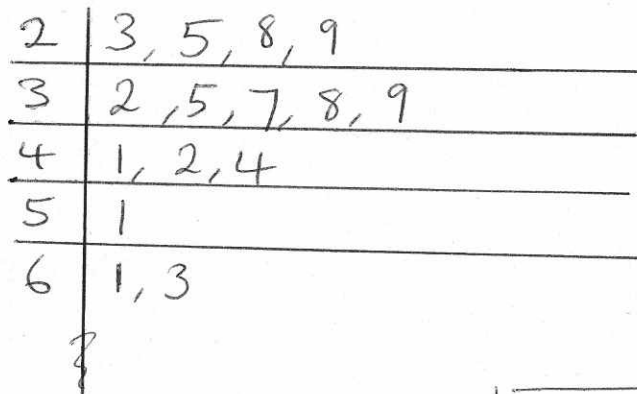 2 | 3, 5, 8, 9
3 | 2, 5, 7, 8, 9
4 | 1, 2, 4
5 | 1
6 | 1, 3